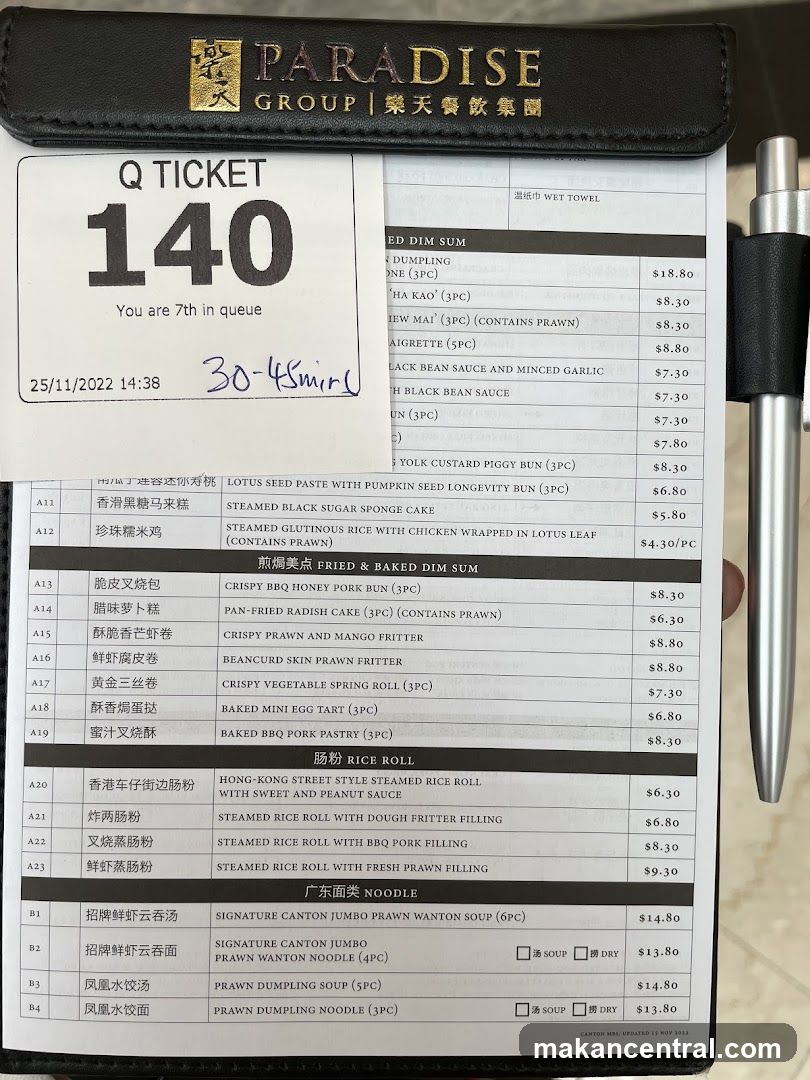 樂天
PARADISE
GROUP | 樂天餐飲集團
Q TICKET
140
You are 7th in queue
25/11/2022 14:38 30-45mins
温纸巾 WET TOWEL
ED DIM SUM
N DUMPLING
ONE (3PC) $18.80
'HA KAO' (3PC) $8.30
IEW MAI' (3PC) (CONTAINS PRAWN) $8.30
AIGRETTE (5PC) $8.80
LACK BEAN SAUCE AND MINCED GARLIC $7.30
H BLACK BEAN SAUCE $7.30
UN (3PC) $7.30
C) $7.80
G YOLK CUSTARD PIGGY BUN (3PC) $8.30
南瓜子莲蓉迷你寿桃 LOTUS SEED PASTE WITH PUMPKIN SEED LONGEVITY BUN (3PC) $6.80
A11 香滑黑糖马来糕 STEAMED BLACK SUGAR SPONGE CAKE $5.80
A12 珍珠糯米鸡 STEAMED GLUTINOUS RICE WITH CHICKEN WRAPPED IN LOTUS LEAF
(CONTAINS PRAWN) $4.30/PC
煎焗美点 FRIED & BAKED DIM SUM
A13 脆皮叉烧包 CRISPY BBQ HONEY PORK BUN (3PC) $8.30
A14 腊味萝卜糕 PAN-FRIED RADISH CAKE (3PC) (CONTAINS PRAWN) $6.30
A15 酥脆香芒虾卷 CRISPY PRAWN AND MANGO FRITTER $8.80
A16 鲜虾腐皮卷 BEANCURD SKIN PRAWN FRITTER $8.80
A17 黄金三丝卷 CRISPY VEGETABLE SPRING ROLL (3PC) $7.30
A18 酥香焗蛋挞 BAKED MINI EGG TART (3PC) $6.80
A19 蜜汁叉烧酥 BAKED BBQ PORK PASTRY (3PC) $8.30
肠粉 RICE ROLL
A20 香港车仔街边肠粉 HONG-KONG STREET STYLE STEAMED RICE ROLL
WITH SWEET AND PEANUT SAUCE $6.30
A21 炸两肠粉 STEAMED RICE ROLL WITH DOUGH FRITTER FILLING $6.80
A22 叉烧蒸肠粉 STEAMED RICE ROLL WITH BBQ PORK FILLING $8.30
A23 鲜虾蒸肠粉 STEAMED RICE ROLL WITH FRESH PRAWN FILLING $9.30
广东面类 NOODLE
B1 招牌鲜虾云吞汤 SIGNATURE CANTON JUMBO PRAWN WANTON SOUP (6PC) $14.80
B2 招牌鲜虾云吞面 SIGNATURE CANTON JUMBO
PRAWN WANTON NOODLE (4PC) 汤 SOUP 捞 DRY $13.80
B3 凤凰水饺汤 PRAWN DUMPLING SOUP (5PC) $14.80
B4 凤凰水饺面 PRAWN DUMPLING NOODLE (3PC) 汤 SOUP 捞 DRY $13.80
CANTON MBS, UPDATED 15 NOV 2022
makancentral.com